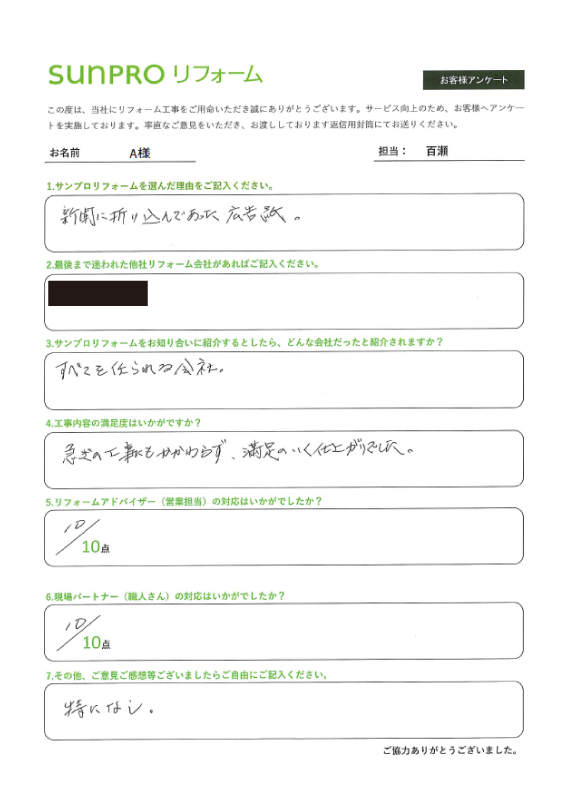 sunPRO リフォーム
お客様アンケート
この度は、当社にリフォーム工事をご用命いただき誠にありがとうございます。サービス向上のため、お客様へアンケー
トを実施しております。率直なご意見をいただき、お渡ししております返信用封筒にてお送りください。
お名前 A様 担当： 百瀬
1.サンプロリフォームを選んだ理由をご記入ください。
新聞に折り込んであった広告紙。
2.最後まで迷われた他社リフォーム会社があればご記入ください。
3.サンプロリフォームをお知り合いに紹介するとしたら、どんな会社だったと紹介されますか？
すべてを任られる会社。
4.工事内容の満足度はいかがですか？
急ぎの工事にもかかわらず、満足のいく仕上がりでした。
5.リフォームアドバイザー（営業担当）の対応はいかがでしたか？
10/10点
6.現場パートナー（職人さん）の対応はいかがでしたか？
10/10点
7.その他、ご意見ご感想等ございましたらご自由にご記入ください。
特になし。
ご協力ありがとうございました。